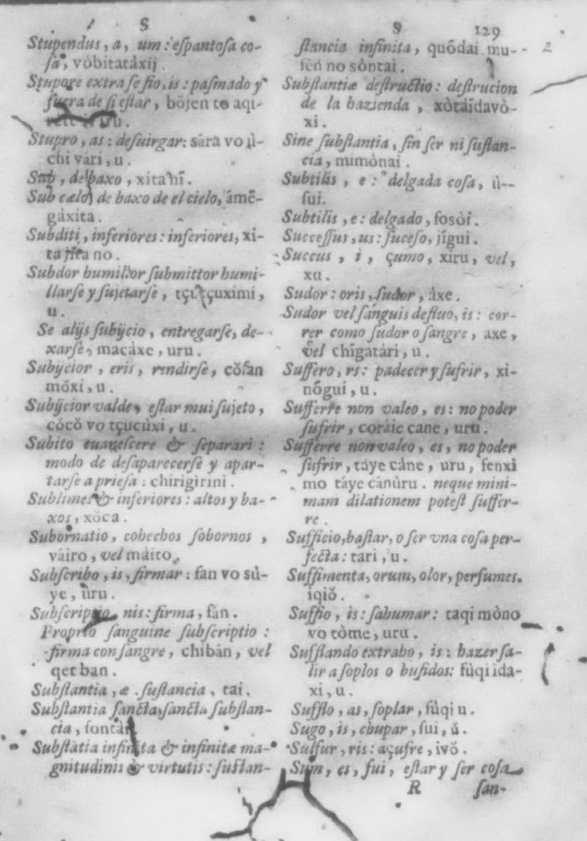 S
Stupendus, a, um: espantosa co-
sa, vòbitatáxij.
Stupore extra se sio, is: pasmado y
fuera de si estar, bòjen te aqi-
Stupro, as: desuirgar: sàra vo ji-
chi vari, u.
Sub, debaxo, xita nî.
Sub cælo, de baxo de el cielo, ámẽ-
gáxita.
Subditi, inferiores: inferiores, xi-
ta jita no.
Subdor humilior submittor humi-
llarse y sujetarse, tçitçuximi,
u.
Se alijs subijcio, entregarse, de-
xarse, macáxe, uru.
Subijcior, eris, rendirse, cõsan
móxi, u.
Subijcior valde, estar mui sujeto,
còcô vo tçucúxi, u.
Subito euanescere & separari:
modo de desaparecerse y apar-
tarse a priesa: chirigirini.
Sublimes & inferiores: altos y ba-
xos, xôca.
Subornatio, cohechos sobornos,
váiro, vel máito.
Subscribo, is, firmar: fan vo sù-
ye, ùru.
Subscriptio, nis: firma, fán.
Proprio sanguine subscriptio:
firma con sangre, chibàn, vel
qet ban.
Substantia, æ sustancia, tai.
Substantia sancta, sancta substan-
cia, sontài.
Substãtia infinita & infinitæ ma-
gnitudinis & virtutis: sustan-
S 129
stancia infinita, quõdai mu-
fen no sóntai.
Substantiæ destructio: destrucion
de la hazienda, xòtáidavò-
xi.
Sine substantia, sin ser ni sustan-
cia, mimònai.
Subtilis, e: delgada cosa, ù-
sui.
Subtilis, e: delgado, fosòi.
Successus, us: suceso, jîgui.
Succus, i, çumo, xiru, vel,
xu.
Sudor: oris, sudor, áxe.
Sudor vel sánguis defluo, is: cor-
rer como sudor o sangre, axe,
vel chîgatàri, ù.
Suffero, rs: padecer y sufrir, xi-
nôgui, u.
Sufferre non valeo, es: no poder
sufrir, coràie cane, uru.
Sufferre non valeo, es, no poder
sufrir, táye câne, uru, fenxi
mo táye cánùru. neque mini-
mam dilationem potest suffer-
re.
Sufficio, bastar, o ser vna cosa per-
fecta: tari, u.
Suffimenta, orum, olor, perfumes.
iqiǒ.
Suffio, is: sahumar: taqi mòno
vo tòme, uru.
Sufflando extrabo, is: hazer sa-
lir a soplos o bufidos: fûqi ida-
xi, u.
Sufflo, as, soplar, fûqi u.
Sugo, is, chupar, sui, ú.
Sulfur, ris: açufre, ivǒ.
Sum, es, fui, estar y ser cosa
R san-